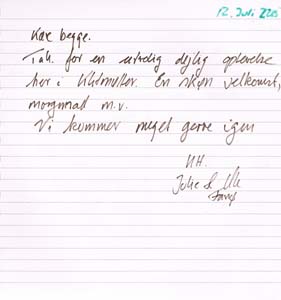 12. Juli 22
Kære begge.
Tak for en utrolig dejlig oplevelse
her i Klitmøller. En skøn velkomst,
morgenmad m.v.
Vi kommer meget gerne igen
KH.
Julie & Ole